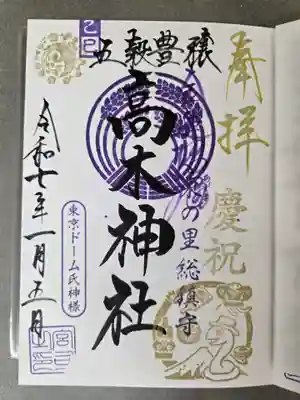 奉拝 慶祝
五穀豊穣
の里総鎮守
高木神社
乙巳
東京ドーム氏神様
令和七年一月五日